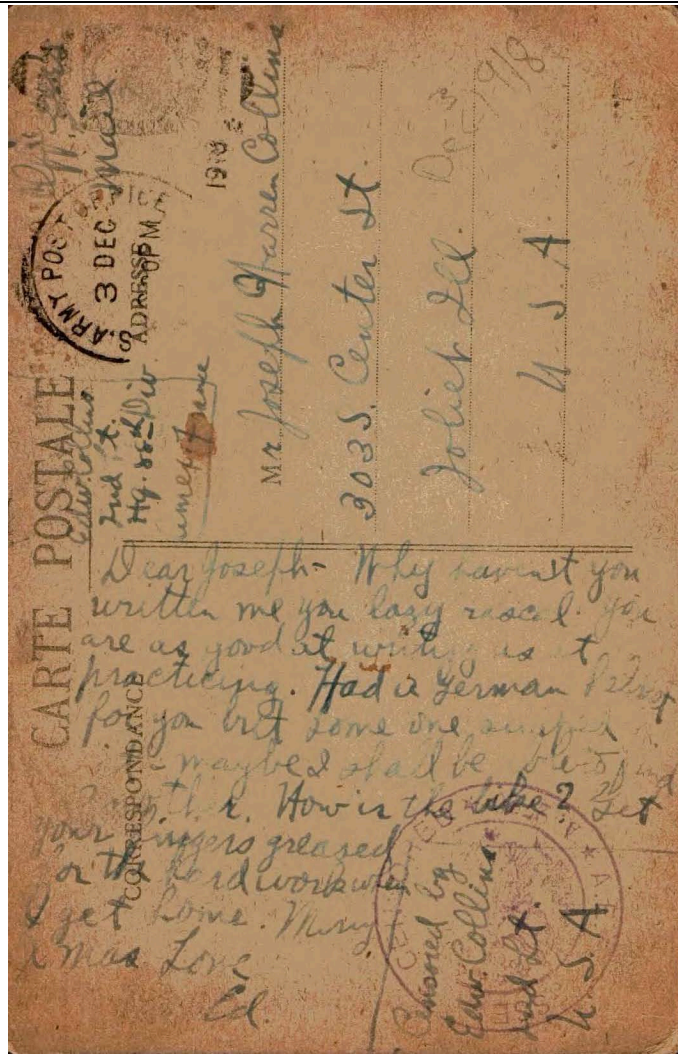 CARTE POSTALE
CORRESPONDANCE
ADRESSE
Mail
S. ARMY POST SERVICE
3 DEC
PM
1918
Dec 3 1918
Edw Collins
2nd Lt.
Hq. 88th Div
France
Mr Joseph Warren Collins
303 S. Center St.
Joliet Ill.
U S A
Dear Joseph- Why havent you
written me you lazy rascal. You
are as good at writing as at
practicing. Had a German
for you but some one swiped
maybe I shall be able to find
another. How is the bike? Get
your fingers greased
for the hard work when
I get home. Merry
Xmas Love
Ed.
Censored by
Edw. Collins
2nd Lt.
U S A